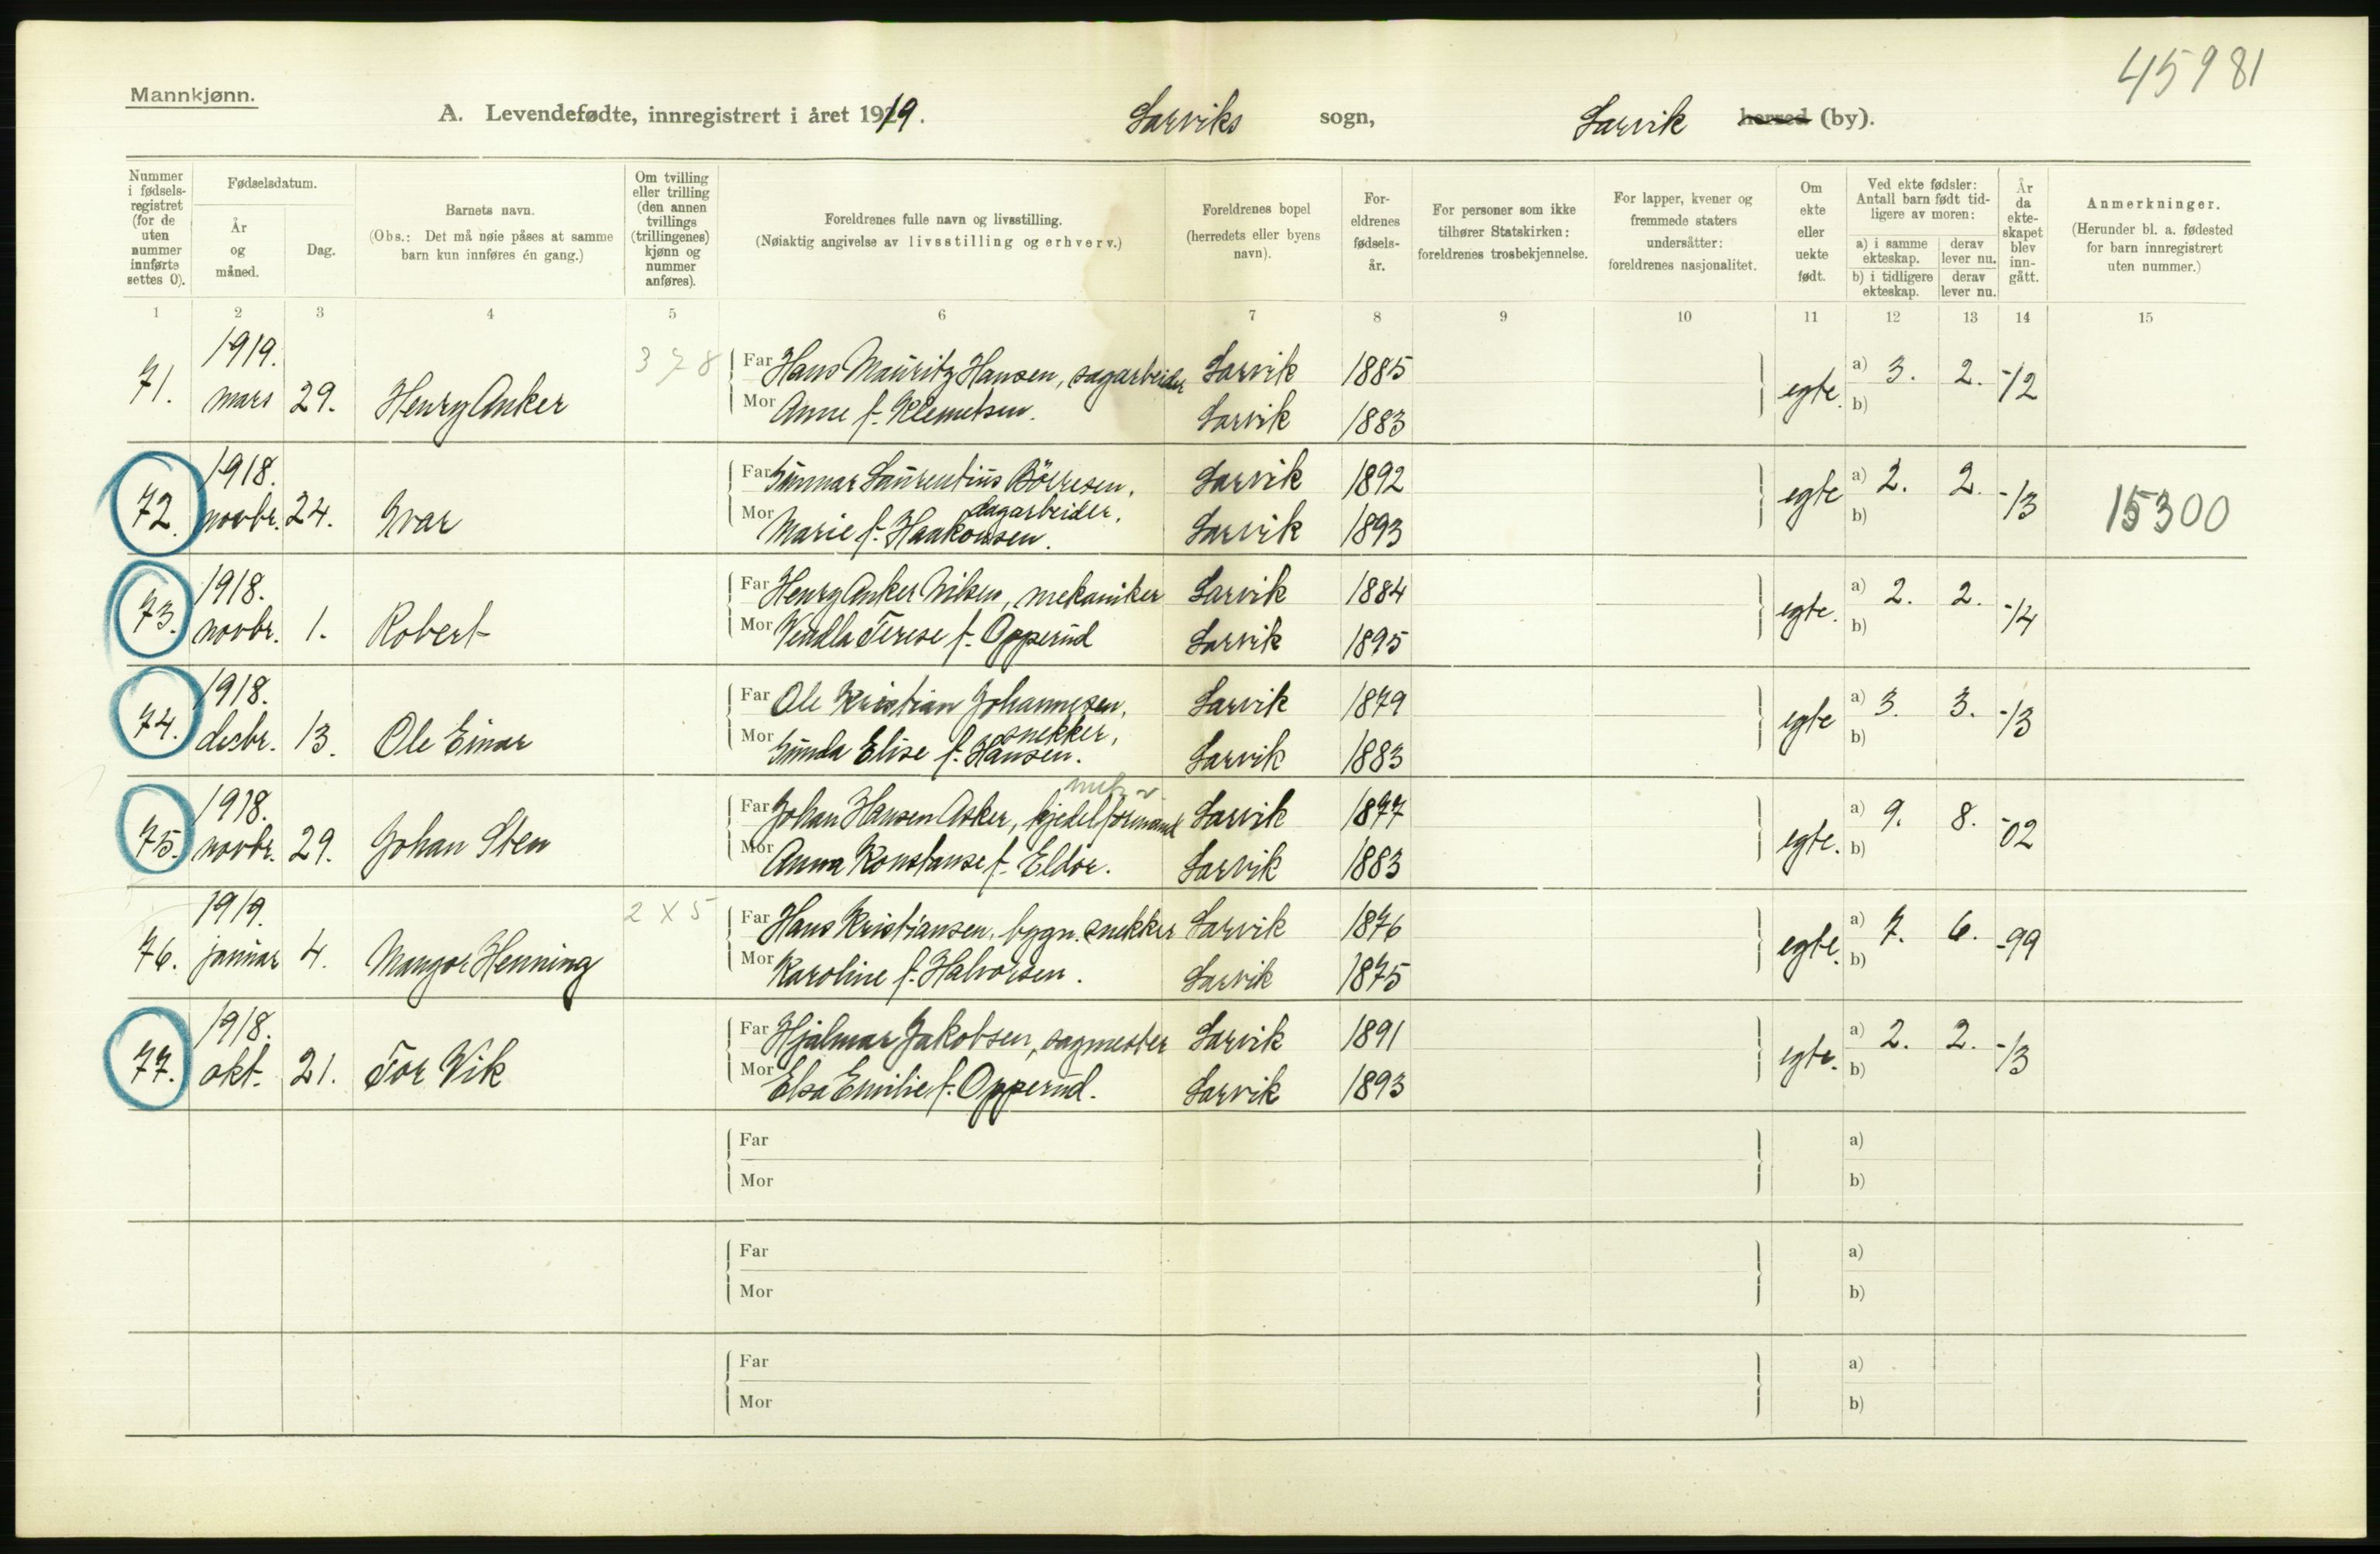 45981
Mannkjønn.
A. Levendefødte, innregistrert i året 1919. Larviks sogn, Larvik herred (by).
Nummer i fødselsregistret (for de uten nummer innførte settes 0).
Fødselsdatum.
År og måned.
Dag.
Barnets navn.
(Obs.: Det må nøie påses at samme barn kun innføres én gang.)
Om tvilling eller trilling (den annen tvillings (trillingenes) kjønn og nummer anføres).
Foreldrenes fulle navn og livsstilling.
(Nøiaktig angivelse av livsstilling og erhverv.)
Foreldrenes bopel (herredets eller byens navn).
Foreldrenes fødselsår.
For personer som ikke tilhører Statskirken: foreldrenes trosbekjennelse.
For lapper, kvener og fremmede staters undersåtter: foreldrenes nasjonalitet.
Om ekte eller uekte født.
Ved ekte fødsler: Antall barn født tidligere av moren:
a) i samme ekteskap.
derav lever nu.
b) i tidligere ekteskap.
derav lever nu.
År da ekteskapet blev inngått.
Anmerkninger.
(Herunder bl. a. fødested for barn innregistrert uten nummer.)
1 2 3 4 5 6 7 8 9 10 11 12 13 14 15
71. 1919. mars 29. Henry Anker 3 7 8 Far Hans Mauritz Hansen, sagarbeider Larvik 1885 egte. a) 3. 2. -12
Mor Anne f. Klemetsen. Larvik 1883 b)
72. 1918. novbr. 24. Ivar Far Gunnar Laurentius Börresen, sagarbeider, Larvik 1892 egte a) 2. 2. -13 15300
Mor Marie f. Haakonsen. Larvik 1893 b)
73. 1918. novbr. 1. Robert Far Henry Anker Nilsen, mekaniker Larvik 1884 egte. a) 2. 2. -14
Mor Vendla Terese f. Opperud Larvik 1895 b)
74. 1918. decbr. 13. Ole Einar Far Ole Kristian Johannesen, snekker, Larvik 1879 egte a) 3. 3. -13
Mor Gunda Elise f. Hansen. Larvik 1883 b)
75. 1918. novbr. 29. Johan Sten Far Johan Hansen Asker, kjedelformand Larvik 1877 egte. a) 9. 8. -02
Mor Anna Konstanse f. Eldor. Larvik 1883 b)
76. 1919. januar 4. Mangor Henning 2 X 5 Far Hans Kristiansen, bygn. snekker Larvik 1876 egte. a) 7. 6. -99
Mor Karoline f. Halvorsen. Larvik 1875 b)
77. 1918. okt. 21. Tor Vik Far Hjalmar Jakobsen, sagmester Larvik 1891 egte. a) 2. 2. -13
Mor Elsa Emilie f. Opperud. Larvik 1893 b)
Far a)
Mor b)
Far a)
Mor b)
Far a)
Mor b)